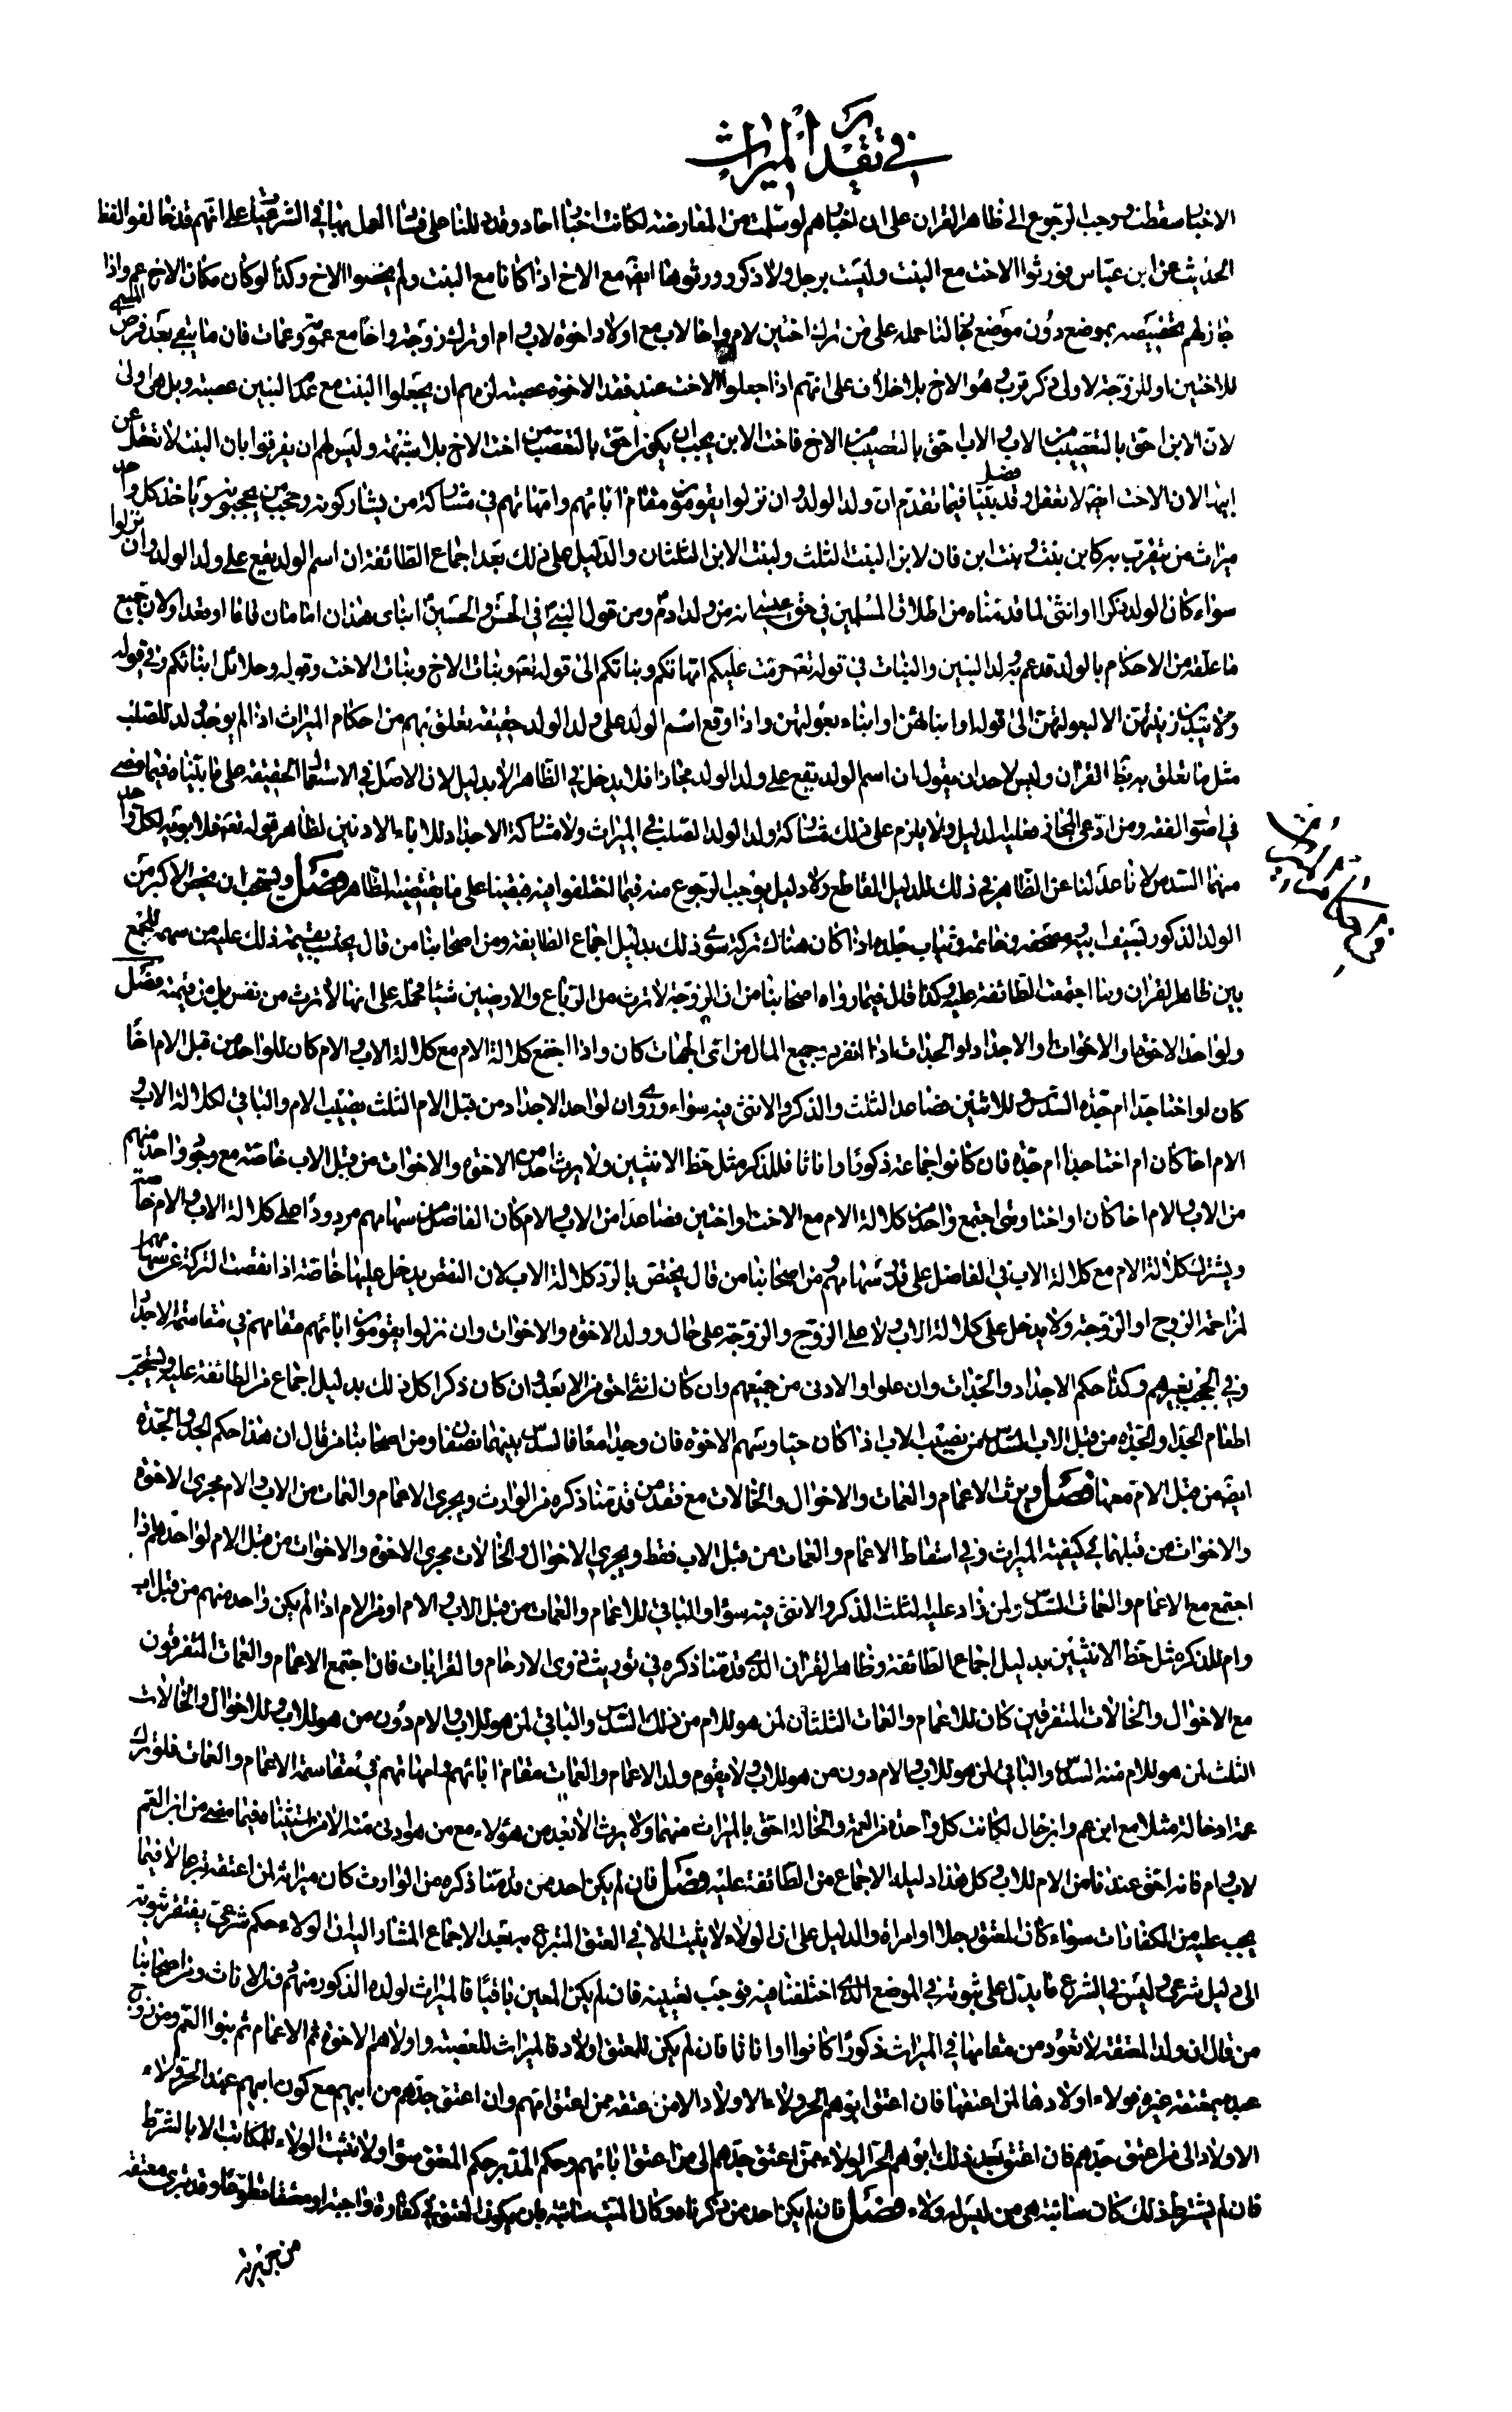 في تقدير الميراث
الاخبار سقطت ووجب الرجوع الى ظاهر القران على ان اخبارهم لو سلمت من المعارضة لكانت اخبار احاد وقد دللنا على فساد العمل بها في الشرعيات على انهم قد خالفوا لفظ
الحديث عن ابن عباس فورثوا الاخت مع البنت وليست برجل ولا ذكر وورثوها ايضا مع الاخ اذا كانا مع البنت ولم يخصوا الاخ وكذا لو كان مكان الاخ عم واذا
جاز لهم تخصيصه بموضع دون موضع جاز لنا حمله على من ترك اختين لام واخا لاب مع اولاد اخوة لاب وام او ترك زوجة واخا مع عمومة وعمات فان ما يبقى بعد فرض المسمى
للاختين او للزوجة لاولى ذكر قرب وهو الاخ بلا خلاف على انهم اذا جعلوا الاخت عند فقد الاخوة عصبة لزمهم ان يجعلوا البنت مع عدم البنين عصبة وبل هي اولى
لان الابن احق بالتعصيب من الاب والاب احق بالتعصيب من الاخ فاخت الابن يجب ان يكون احق بالتعصيب من اخت الاخ بلا شبهة وليس لهم ان يفرقوا بان البنت لا تعقل عن
ابيها لان الاخت ايضا لا تعقل فصل وقد بينا فيما تقدم ان ولد الولد وان نزلوا يقومون مقام ابائهم وامهاتهم في مشاركة من يشاركونه وحجب من يحجبونه وياخذ كل واحد
ميراث من يتقرب به كابن بنت وبنت ابن فان لابن البنت الثلث ولبنت الابن الثلثان والدليل على ذلك بعد اجماع الطائفة ان اسم الولد يقع على ولد الولد وان نزلوا
سواء كان الولد ذكرا او انثى لما قدمناه من اطلاق المسلمين في حق عيسى انه من ولد ادم ومن قول النبي في الحسن والحسين ابناى هذان امامان قاما او قعدا ولان جميع
ما علقه من الاحكام بالولد قد عم به ولد البنين والبنات في قوله تعه حرمت عليكم امهاتكم وبناتكم الى قوله تعه وبنات الاخ وبنات الاخت وقوله وحلائل ابنائكم وفي قوله
ولا يبدين زينتهن الا لبعولتهن الى قوله او ابنائهن او ابناء بعولتهن واذا وقع اسم الولد على ولد الولد حقيقة تعلق بهم من احكام الميراث اذا لم يوجد ولد للصلب
مثل ما تعلق به بظاهر القران وليس لاحد ان يقول ان اسم الولد يقع على ولد الولد مجازا فلا يدخل في الظاهر الا بدليل لان الاصل في الاستعمال الحقيقة على ما بيناه فيما مضى
في اصول الفقه ومن ادعى المجاز فعليه الدليل ولا يلزم على ذلك مشاركة ولد الولد الصلب في الميراث ولا مشاركة الاجداد للاباء الادنين لظاهر قوله تعه فلابويه لكل واحد
منهما السدس لانا عدلنا عن الظاهر في ذلك للدليل القاطع ولا دليل يوجب الرجوع منه فيما اختلفوا فيه فبقينا على ما يقتضيه الظاهر فصل ويستحب ان يخص الاكبر من
الولد الذكور بسيف ابيه ومصحفه وخاتمه وثياب جلده اذا كان هناك تركة سوى ذلك بدليل اجماع الطايفة ومن اصحابنا من قال يحتسب بقيمة ذلك عليه من سهمه للجمع
بين ظاهر القران وما اجتمعت الطائفة عليه وكذا قال فيما رواه اصحابنا من ان الزوجة لا ترث من الرباع والارضين شيئا محمله على انها لا ترث من نفس بل من قيمته فصل
ولواحد الاخوة او الاخوات او الاجداد او الجدات اذا انفرد جميع المال من اى الجهات كان واذا اجتمع كلالة الام مع كلالة الاب والام كان للواحد من قبل الام اخا
كان او اختا جدا ام جدة السدس وللاثنين فصاعدا الثلث والذكر والانثى فيه سواء وروى ان لواحد الاجداد من قبل الام الثلث نصيب الام والباقي لكلالة الاب و
الام اخا كان ام اختا جدا ام جدة فان كانوا جماعة ذكورا واناثا فللذكر مثل حظ الانثيين ولا يرث احد من الاخوة والاخوات من قبل الاب خاصة مع وجود واحد منهم
من الاب والام اخا كان او اختا ومتى اجتمع واحد من كلالة الام مع الاخت او اختين فصاعدا من الاب والام كان الفاضل من سهامهم مردودا على كلالة الاب والام خاصة
ويشترك كلالة الام مع كلالة الاب في الفاضل على قدر سهامهم ومن اصحابنا من قال يختص بالرد كلالة الاب لان النقص يدخل عليها خاصة اذا نقصت التركة عن سهامهم
لمزاحمة الزوج او الزوجة ولا يدخل على كلالة الام ولا على الزوج والزوجة على حال وولد الاخوة والاخوات وان نزلوا يقومون مقام ابائهم مقامهم في مقاسمة الاجداد
وفي الحجب لغيرهم وكذا حكم الاجداد والجدات وان علوا والادنى من جميعهم وان كان انثى احق من الابعد وان كان ذكرا كل ذلك بدليل اجماع من الطائفة عليه ويستحب
اطعام الجد او الجدة من قبل الاب السدس من نصيب الاب اذا كان حيا وسهم الاخوة فان وجدا معا فالسدس بينهما نصفان ومن اصحابنا من قال ان هذا حكم الجد والجدة
ايضا من قبل الام معها فصل ويرث الاعمام والعمات والاخوال والخالات مع فقد من قدمنا ذكره من الوارث ويجرى الاعمام والعمات من الاب والام مجرى الاخوة
والاخوات من قبلهما في كيفية الميراث وفي اسقاط الاعمام والعمات من قبل الاب فقط ويجرى الاخوال والخالات مجرى الاخوة والاخوات من قبل الام لواحدهم اذا
اجتمع مع الاعمام والعمات السدس ولمن زاد عليه الثلث الذكر والانثى فيه سواء والباقي للاعمام والعمات من قبل الاب والام او من الام اذا لم يكن واحد منهم من قبل اب
وام للذكر مثل حظ الانثيين بدليل اجماع الطائفة وظاهر القران الذى قدمنا ذكره في توريث ذوى الارحام والقرابات فان اجتمع الاعمام والعمات المتفرقون
مع الاخوال والخالات المتفرقين كان للاعمام والعمات الثلثان لمن هو للام من ذلك السدس والباقي لمن هو للاب والام دون من هو للاب وللاخوال والخالات
الثلث لمن هو للام منه السدس والباقي لمن هو للاب والام دون من هو للاب ولا يقوم ولد الاعمام والعمات مقام ابائهم وامهاتهم في مقاسمة الاعمام والعمات فلو ترك
عمة او خالة مثلا مع ابن عم وابن خال لكانت كل واحدة من العمة والخالة احق بالميراث منهما ولا يرث الابعد من هؤلاء مع من هو ادنى منه الا من استثنيناه فيما مضى من ابن العم
لاب وام فانه احق عندنا من الام للاب كل هذا دليله الاجماع من الطائفة عليه فصل فان لم يكن احد ممن قدمنا ذكره من الوارث كان ميراثه لمن اعتقه تبرعا لا فيما
يجب عليه من الكفارات سواء كان المعتق رجلا او امراة والدليل على ان الولاء لا يثبت الا في العتق المتبرع به بعد الاجماع المشار اليه ان الولاء حكم شرعى يفتقر ثبوته
الى دليل شرعى وليس في الشرع ما يدل على ثبوته في الموضع الذى اختلفنا فيه فوجب نفيه فان لم يكن المعتق باقيا فالميراث لولده الذكور منهم دون الاناث ومن اصحابنا
من قال ان ولد المعتقة لا تعود من مقامها في الميراث ذكورا كانوا او اناثا فان لم يكن للمعتق اولاد فالميراث للعصبة واولاهم الاخوة ثم الاعمام ثم بنوا العم ومن زوج
عبده بمعتقة غيره فولاء اولادها لمن اعتقها فان اعتق ابوهم انجر ولاء الاولاد الى من عتقه ممن اعتق امهم وان اعتق جدهم من ابيهم مع كون ابيهم عبدا انجر ولاء
الاولاد الى من اعتق جدهم فان اعتق بعد ذلك ابوهم انجر الولاء ممن اعتق جدهم الى من اعتق اباهم وحكم المدبر حكم المعتق سواء ولا تثبت الولاء للمكاتب الا بالشرط
فان لم يشترط ذلك كان سائبة هى من ليس له ولاء فصل فان لم يكن احد ممن ذكرناه وكان الميت سائبة بان يكون العتق في كفارة واجبة او معتقا تطوعا وقد تبرى معتقه
من جريرته